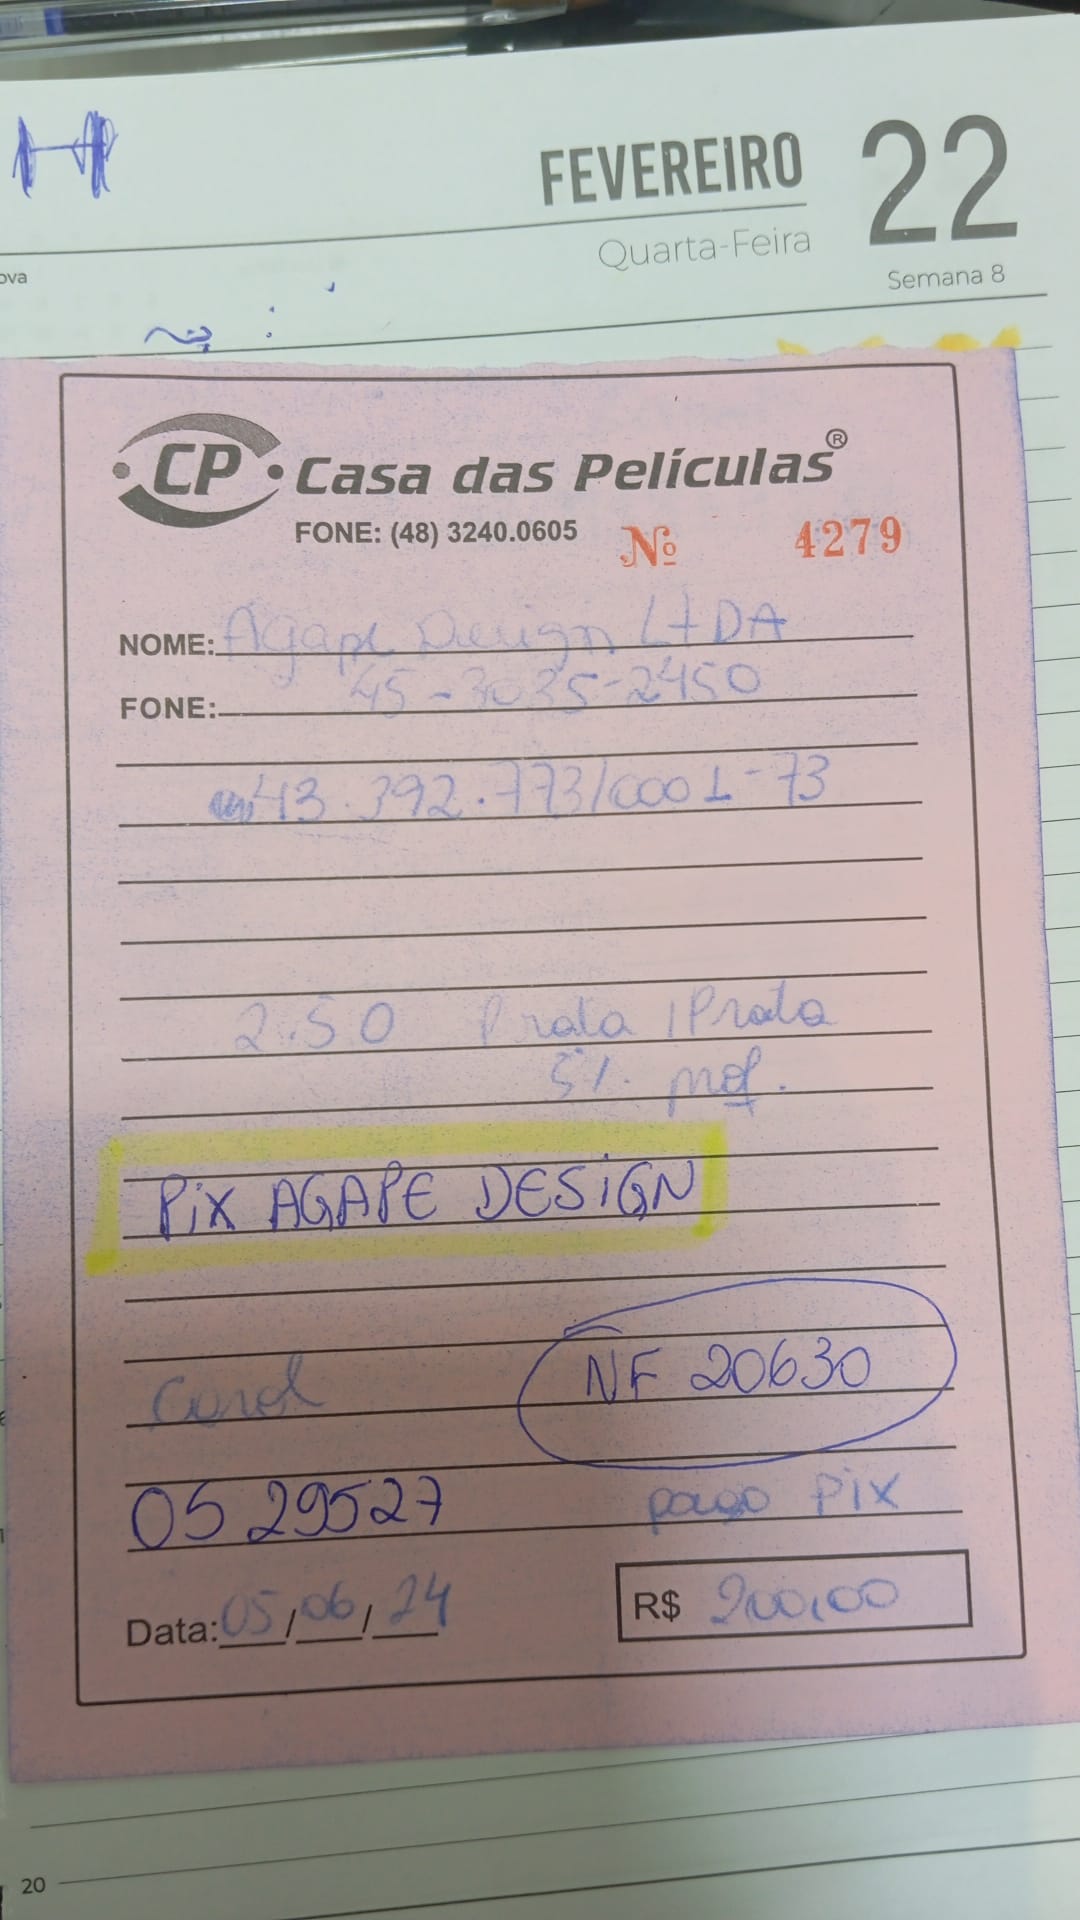 FEVEREIRO 22
Quarta-Feira
Semana 8
ova
CP Casa das Películas®
FONE: (48) 3240.0605 Nº 4279
NOME: Agape Design LtDA
FONE: 45-3035-2450
43.392.773/0001-73
2.50 Prata/Prata
5% mef.
PiX AGAPE DESiGN
NF 20630
Carol
OS 29527 pago Pix
Data: 05/06/24 R$ 200,00
20